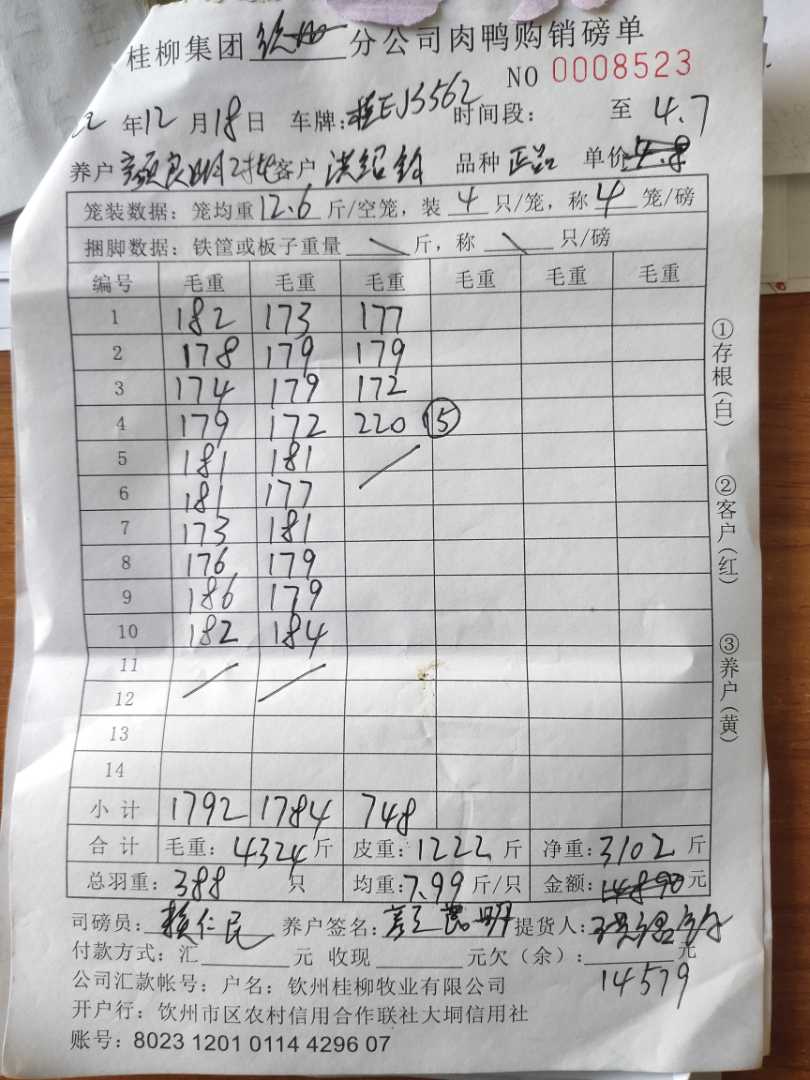 桂柳集团 分公司肉鸭购销磅单
NO 0008523
年12月18日 车牌:桂EJ3562 时间段: 至 4.7
养户 颜良明2批 客户 洪绍钤 品种 正品 单价 4.8
笼装数据: 笼均重12.6斤/空笼, 装 4 只/笼, 称 4 笼/磅
捆脚数据: 铁筐或板子重量 \ 斤, 称 \ 只/磅
编号 毛重 毛重 毛重 毛重 毛重 毛重
1 182 173 177
2 178 179 179
3 174 179 172
4 179 172 220 ⑮
5 181 181
6 181 177
7 173 181
8 176 179
9 186 179
10 182 184
11
12
13
14
小计 1792 1784 748
合计 毛重: 4324斤 皮重: 1222斤 净重: 3102斤
总羽重: 388 只 均重: 7.99斤/只 金额: 14890元
司磅员: 赖仁民 养户签名: 提货人:
付款方式: 汇 元 收现 元欠(余): 元
14579
公司汇款帐号: 户名: 钦州桂柳牧业有限公司
开户行: 饮州市区农村信用合作联社大垌信用社
账号: 8023 1201 0114 4296 07
①存根(白)
②客户(红)
③养户(黄)